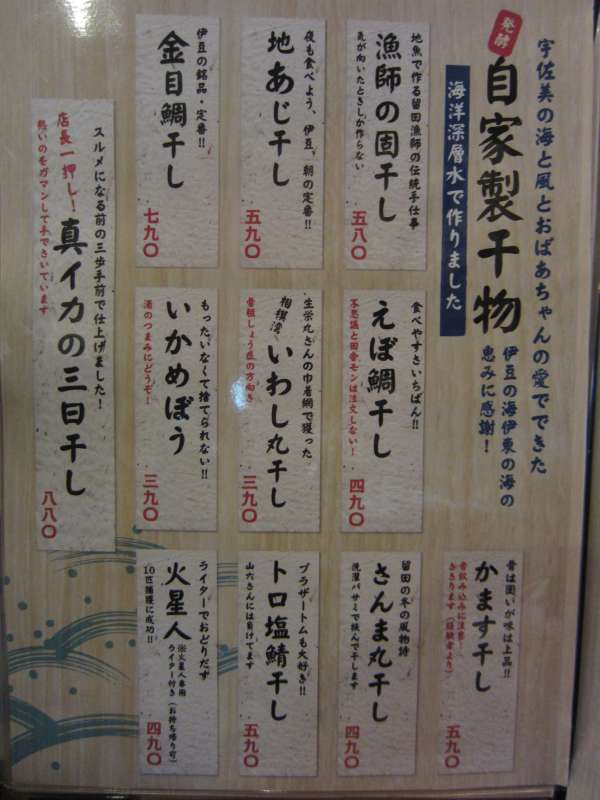 宇佐美の海と風とおばあちゃんの愛でできた
発酵
自家製干物
伊豆の海伊東の海の
恵みに感謝！
海洋深層水で作りました
地魚で作る留田漁師の伝統手仕事
漁師の固干し
気が向いたときしか作らない
五八〇
夜も食べよう、伊豆、朝の定番!!
地あじ干し
五九〇
伊豆の銘品・定番!!
金目鯛干し
七九〇
食べやすさいちばん!!
えぼ鯛干し
不思議と田舎モンは注文しない！
四九〇
生栄丸さんの巾着網で獲った
相模湾
いわし丸干し
骨粗しょう症の方向き
三九〇
もったいなくて捨てられない!!
いかめぼう
酒のつまみにどうぞ！
三九〇
スルメになる前の三歩手前で仕上げました！
真イカの三日干し
店長一押し！
熱いのをガマンして手でさいています
八八〇
昔は固いが味は上品!!
かます干し
骨飲み込みに注意
ささります（経験者より）
五九〇
留田の冬の風物詩
さんま丸干し
洗濯バサミで挟んで干します
四九〇
ブラザートムも大好き!!
トロ塩鯖干し
山六さんには負けてます
五九〇
ライターでおどりだす
火星人
※火星人専用
ライター付き（お持ち帰り可）
10匹捕獲に成功!!
四九〇